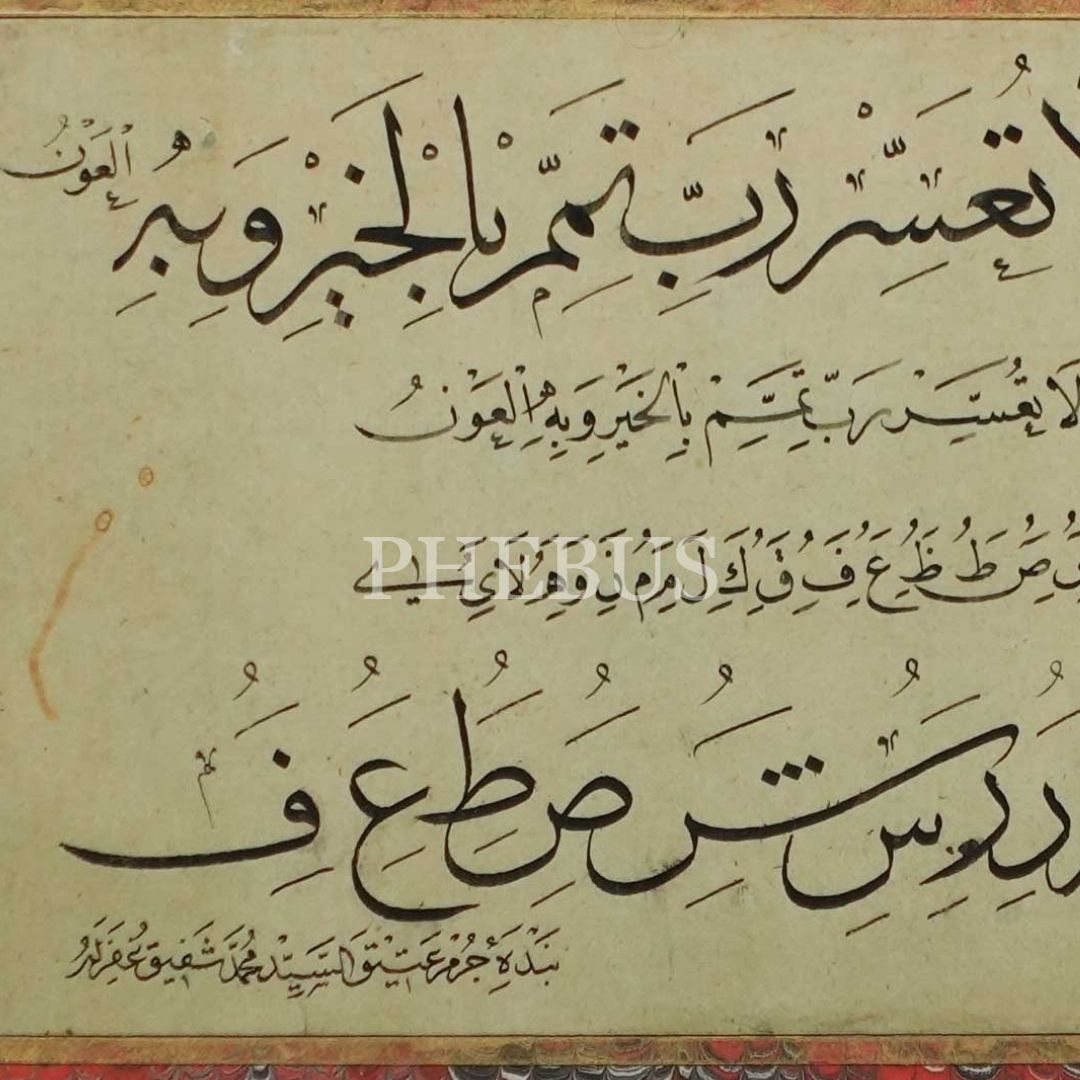 لَا تُعَسِّرْ رَبِّ تَمِّمْ بِالْخَيْرِ وَبِهِ الْعَوْنُ
لَا تُعَسِّرْ رَبِّ تَمِّمْ بِالْخَيْرِ وَبِهِ الْعَوْنُ
صَ طَ ظَ عَ فَ قَ كَ لَ مَ نَ وَ هَ لَا ي
PHEBUS
رُ سُ شُ صُ طُ عُ فُ
السيد محمد شفيق غفر له